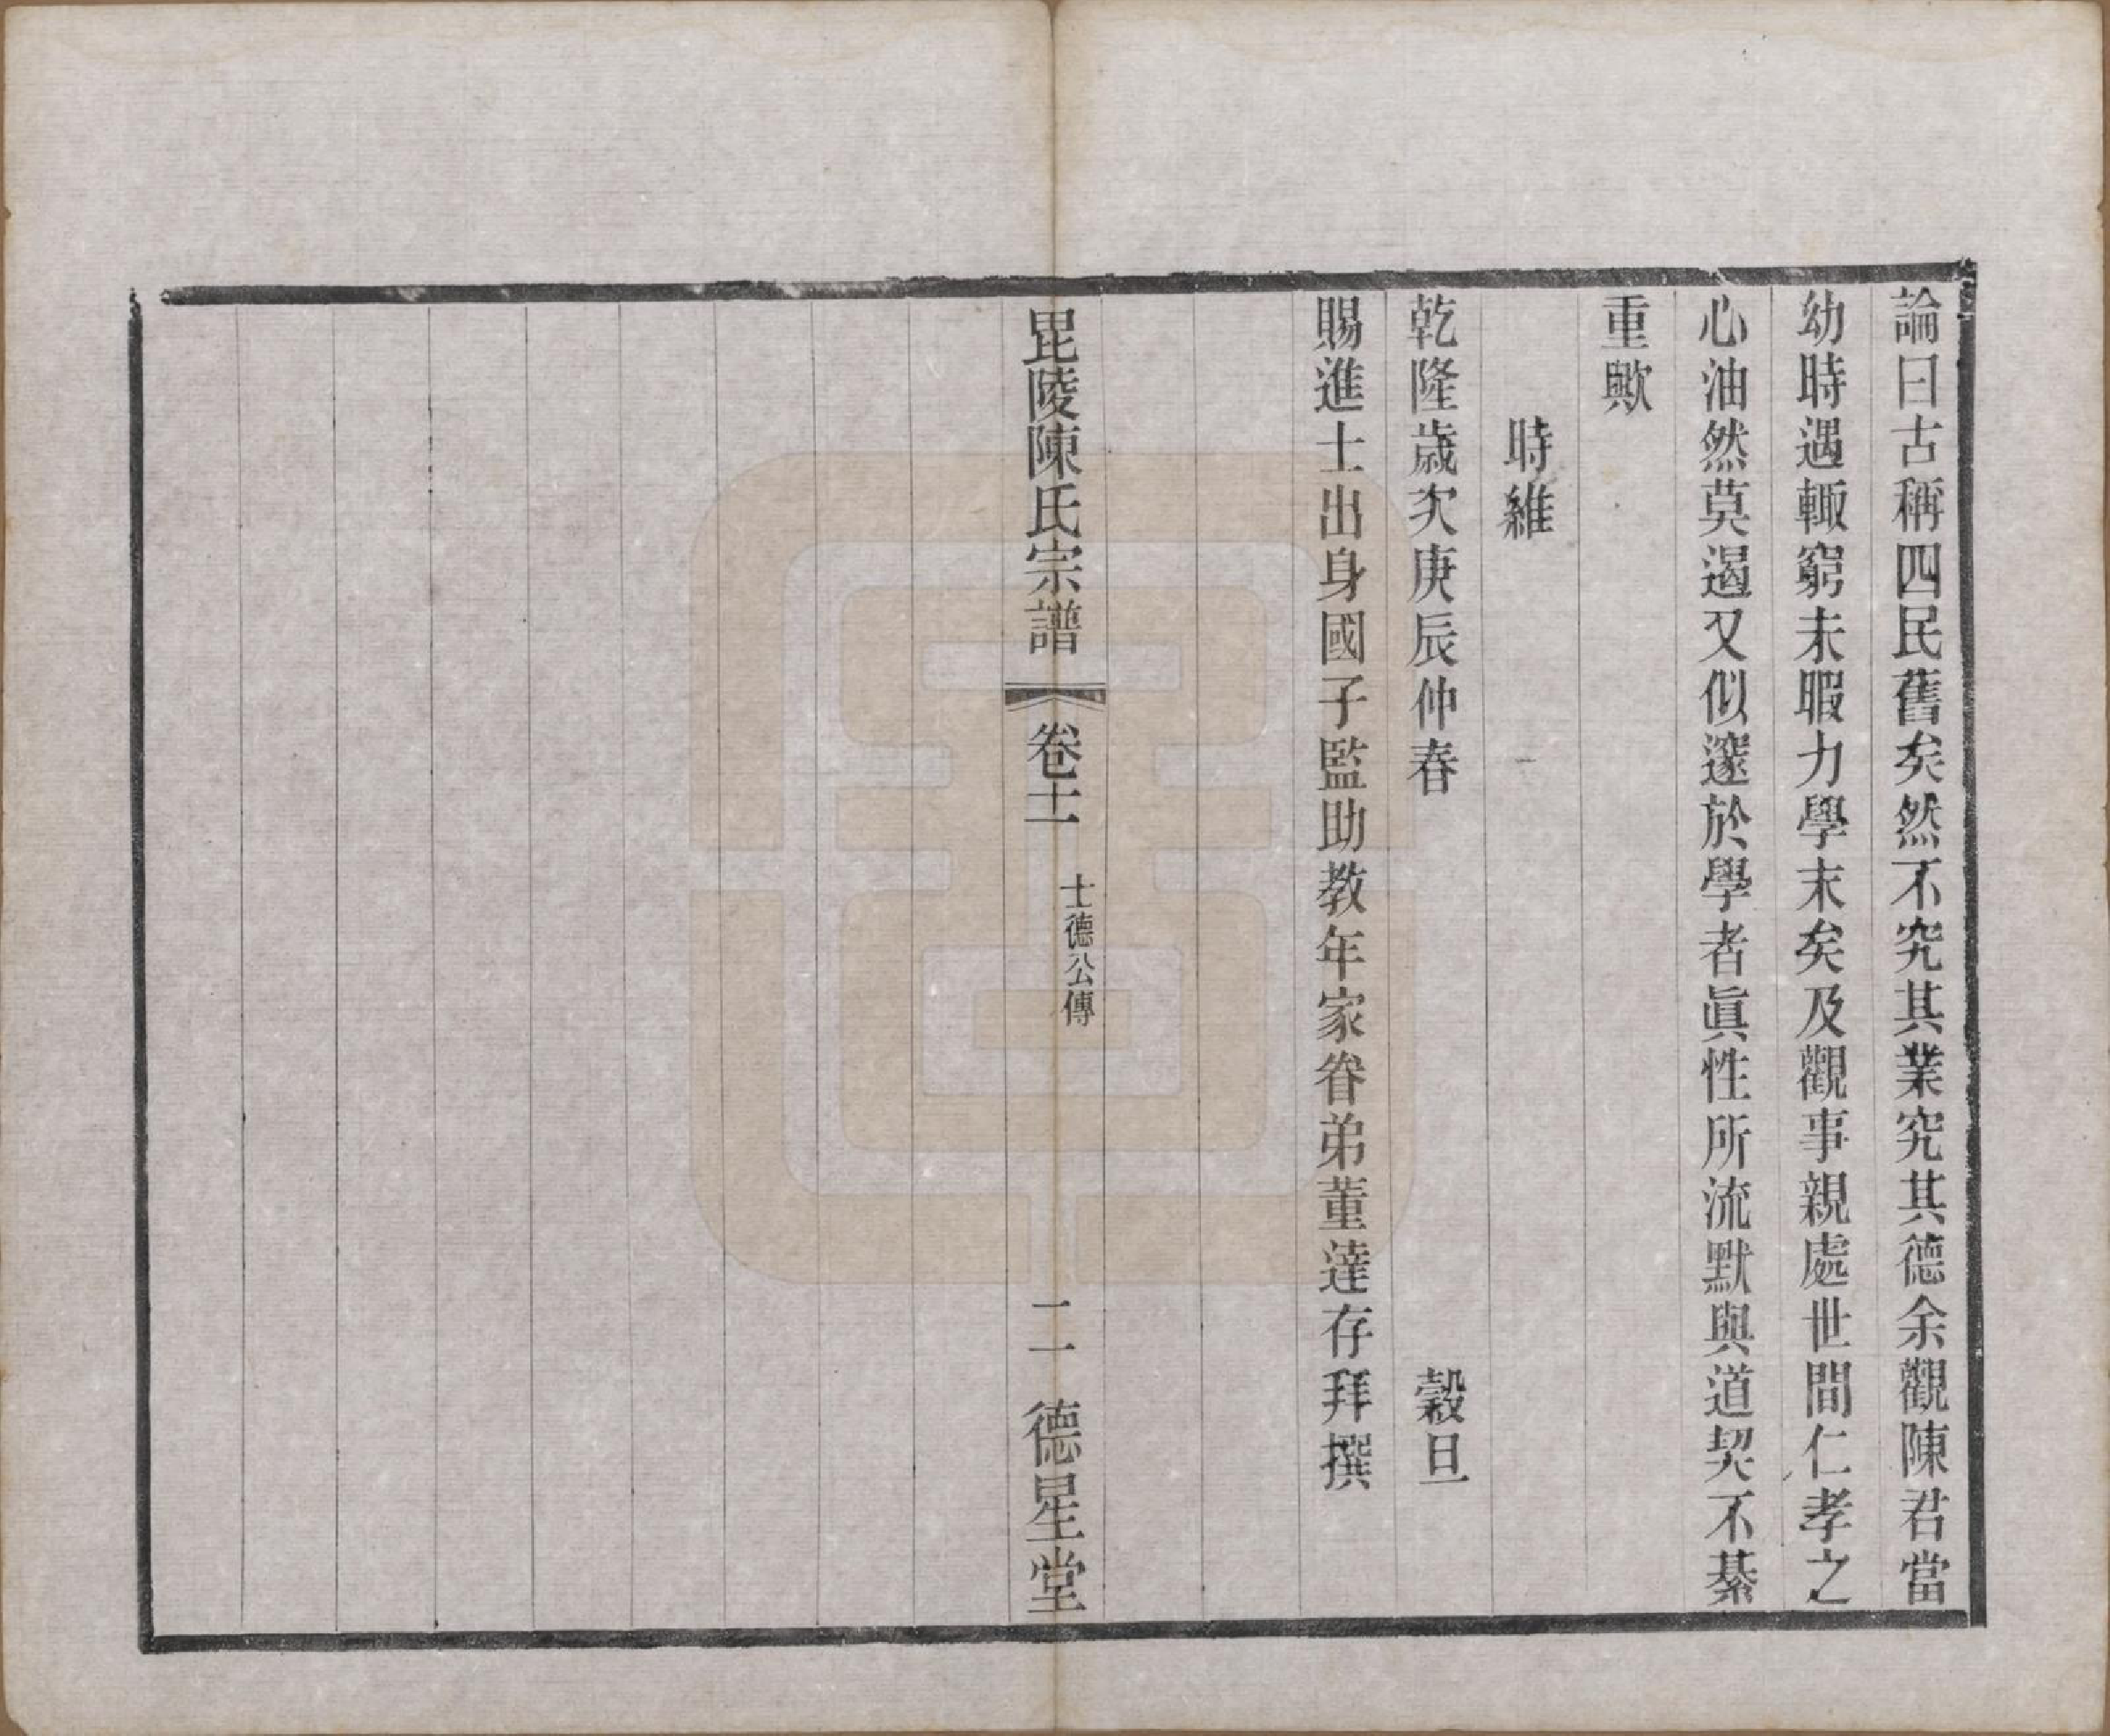 論曰古稱四民舊矣然不究其業究其德余觀陳君當
幼時遇輙窮未暇力學末矣及觀事親處世間仁孝之
心油然莫遏又似邃於學者眞性所流默與道契不綦
重歟
時維
乾隆歲次庚辰仲春 穀旦
賜進士出身國子監助教年家眷弟董達存拜撰
毘陵陳氏宗譜 卷十一 士德公傳 二 德星堂